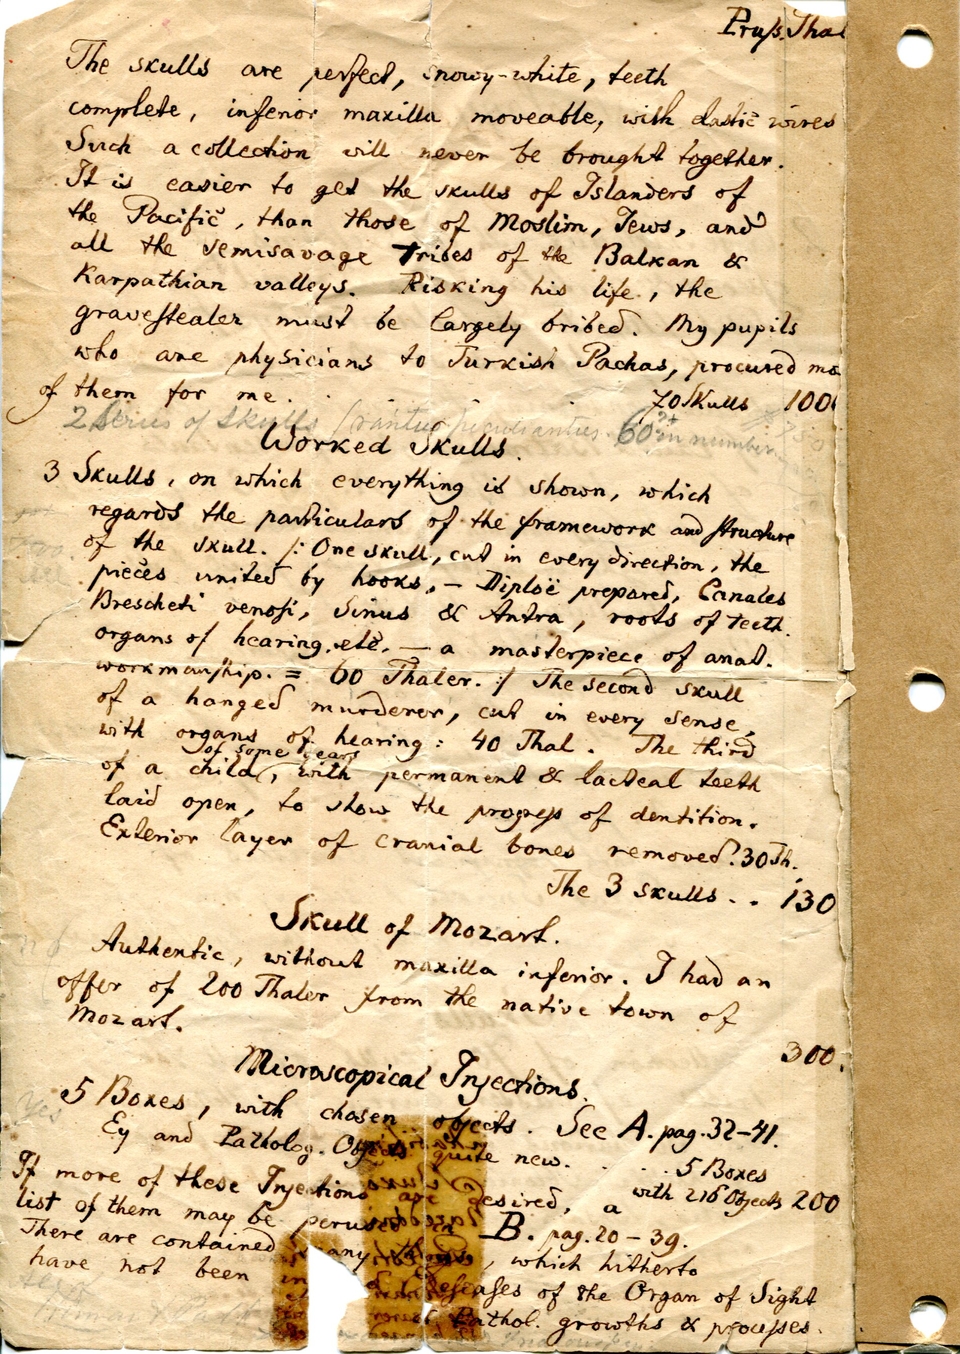 Pruss. Thal
The skulls are perfect, snowy-white, teeth
complete, inferior maxilla moveable, with elastic wires
Such a collection will never be brought together.
It is easier to get the skulls of Islanders of
the Pacific, than those of Moslim, Jews, and
all the semisavage Tribes of the Balkan &
Karpathian valleys. Risking his life, the
gravestealer must be largely bribed. My pupils
who are physicians to Turkish Pachas, procured mo
of them for me. . 70 Skulls 100
2 Series of Skulls 60 in number
Worked Skulls.
3 Skulls, on which everything is shown, which
regards the particulars of the framework and structure
of the skull. /: One skull, cut in every direction, the
pieces united by hooks, – Diploë prepared, Canales
Brescheti venosi, Sinus & Antra, roots of teeth
organs of hearing, etc. — a masterpiece of anat.
workmanship. = 60 Thaler. / The second skull
of a hanged murderer, cut in every sense,
with organs of hearing: 40 Thal. The third
of some years
of a child, with permanent & lacteal teeth
laid open, to show the progress of dentition.
Exterior layer of cranial bones removed. 30 Th.
The 3 skulls . . 130
Skull of Mozart.
Authentic, without maxilla inferior. I had an
offer of 200 Thaler from the native town of
Mozart.
300.
Microscopical Injections.
5 Boxes, with chosen objects. See A. pag. 32–41.
Yes
Ey and Patholog. Objects quite new. . . . 5 Boxes
with 216 Objects 200
If more of these Injections are desired, a
list of them may be perused in B. pag. 20 – 39.
There are contained many , which hitherto
have not been Diseases of the Organ of Sight
Pathol. growths & processes.